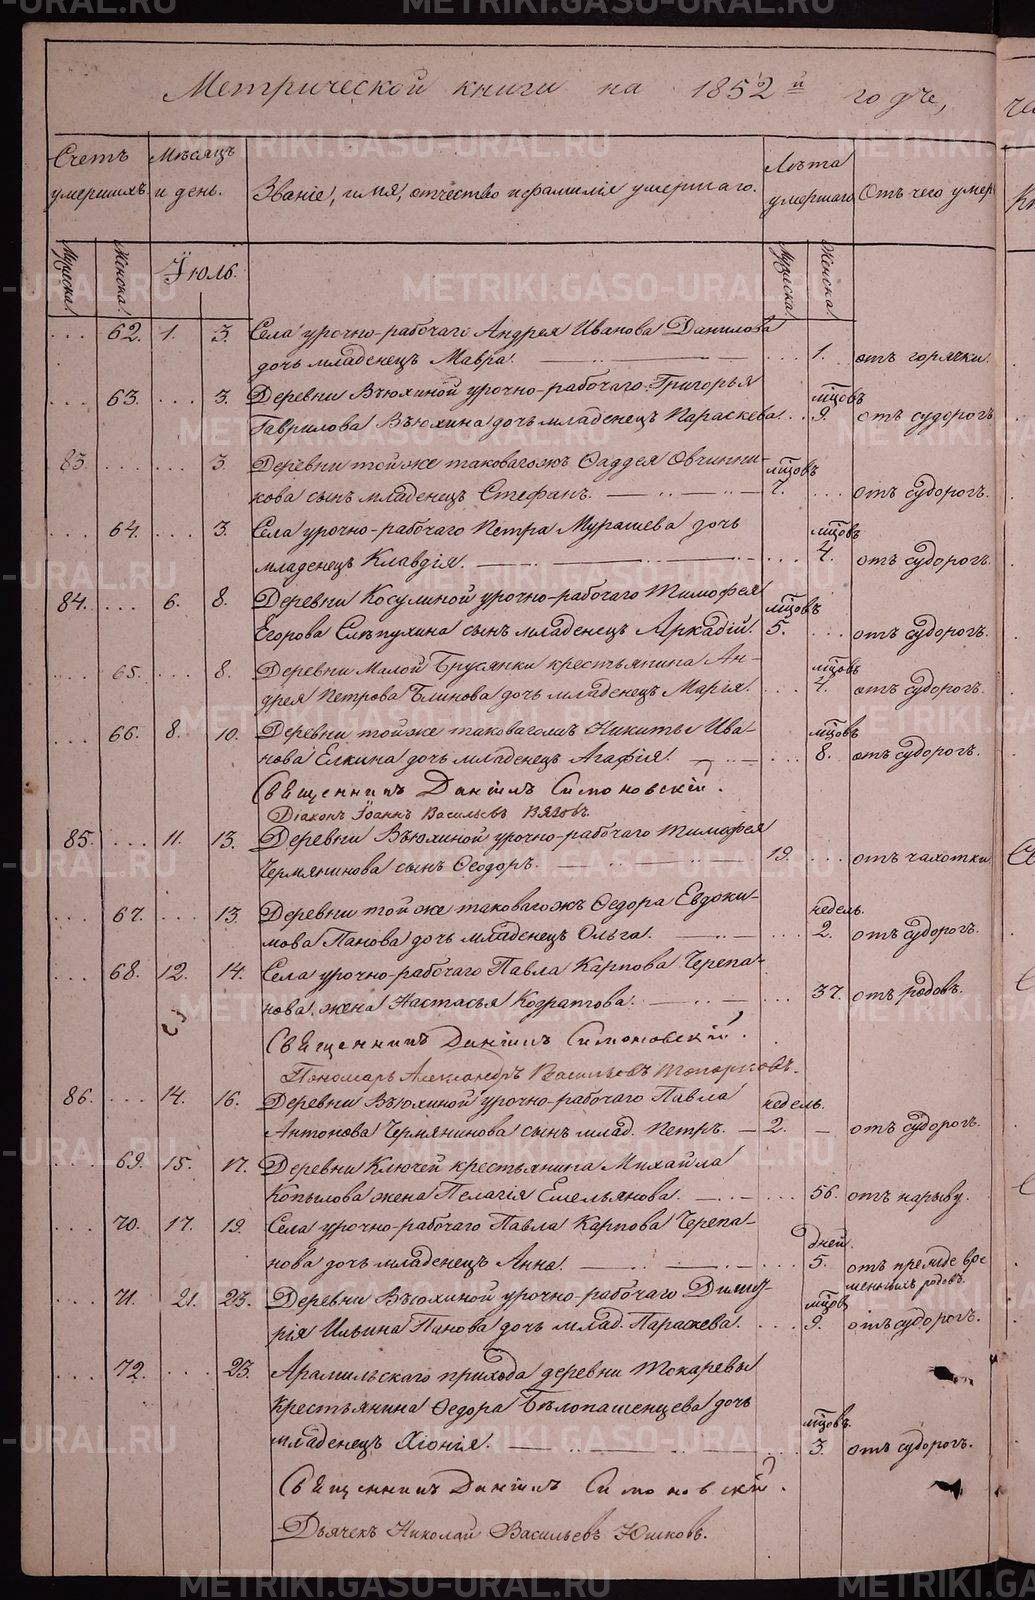 Метрической книги на 1852й годъ,
Счетъ умершихъ.
Мѣсяцъ и день.
Званіе, имя, отчество и фамилія умершаго.
Лѣта умершаго
Отъ чего умер
Мужеска. Женска. Іюль. Мужеска. Женска.
... 62. 1. 3. Села урочно-рабочаго Андрея Иванова Данилова
дочь младенецъ Мавра. ... 1. отъ горячки.
... 63. ... 3. Деревни Вьюхиной урочно-рабочаго Григорья мцовъ
Гаврилова Вьюхина дочь младенецъ Параскева. .. 9. отъ судорогъ
83. ... ... 3. Деревни тойже таковагожъ Фаддея Овчинни- мцовъ
кова сынъ младенецъ Стефанъ. 7. ... отъ судорогъ.
... 64. ... 3. Села урочно-рабочаго Петра Мурашева дочь мцовъ
младенецъ Клавдія. ... 4. отъ судорогъ.
84. ... 6. 8. Деревни Косулиной урочно-рабочаго Тимофея мцовъ
Егорова Слѣпухина сынъ младенецъ Аркадій. 5. ... отъ судорогъ.
... 65. ... 8. Деревни Малой Брусянки крестьянина Ан- мцовъ
дрея Петрова Блинова дочь младенецъ Марія. ... 4. отъ судорогъ.
... 66. 8. 10. Деревни тойже таковагожъ Никиты Ива- мцовъ
нова Елкина дочь младенецъ Агафія. ... 8. отъ судорогъ.
Священникъ Даніилъ Симоновскій.
Діаконъ Іоаннъ Васильевъ Вязовъ.
85. ... 11. 13. Деревни Вьюхиной урочно-рабочаго Тимофея
Чермянинова сынъ Феодоръ. 19. ... отъ чахотки
... 67. ... 13. Деревни тойже таковагожъ Федора Евдоки- недель.
мова Панова дочь младенецъ Ольга. ... 2. отъ судорогъ.
... 68. 12. 14. Села урочно-рабочаго Павла Карпова Черепа-
нова жена Настасья ... 37. отъ родовъ.
Священникъ Даніилъ Симоновскій.
Пономарь Александръ Васильевъ Топорковъ.
86. ... 14. 16. Деревни Вьюхиной урочно-рабочаго Павла недель.
Антонова Чермянинова сынъ млад. Петръ. — 2. — отъ судорогъ.
... 69. 15. 17. Деревни Ключей крестьянина Михайла
Копылова жена Пелагія Емельянова. ... 56. отъ нарыву.
... 70. 17. 19. Села урочно-рабочаго Павла Карпова Черепа- дней.
нова дочь младенецъ Анна. ... 5. отъ прежде вре
менныхъ родовъ.
... 71. 21. 23. Деревни Вьюхиной урочно-рабочаго Димит- мцовъ
рія Ильина Панова дочь млад. Параскева. ... 9. отъ судорогъ.
... 72. ... 23. Арамильскаго прихода деревни Токаревы
крестьянина Федора Бѣлопашенцева дочь мцовъ.
младенецъ Хіонія. ... 3. отъ судорогъ.
Священникъ Даніилъ Симоновскій.
Дьячекъ Николай Васильевъ Юшковъ.
METRIKI.GASO-URAL.RU